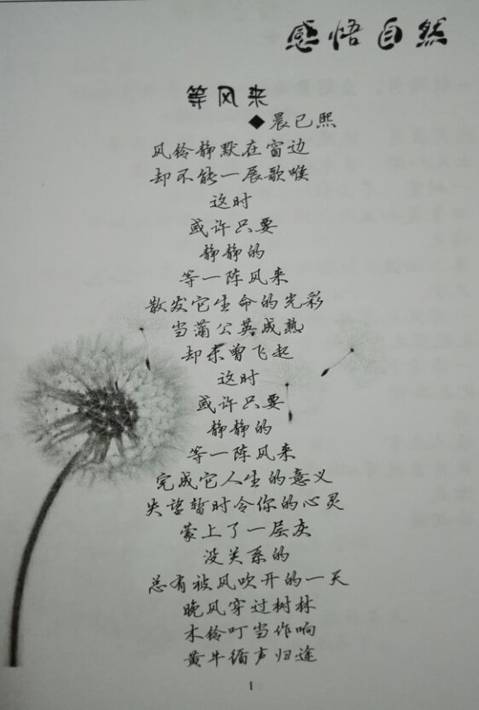 感悟自然
等风来
◆晨已熙
风铃静默在窗边
却不能一展歌喉
这时
或许只要
静静的
等一阵风来
散发它生命的光彩
当蒲公英成熟
却未曾飞起
这时
或许只要
静静的
等一阵风来
完成它人生的意义
失望暂时令你的心灵
蒙上了一层灰
没关系的
总有被风吹开的一天
晚风穿过树林
木铃叮当作响
黄牛循声归途
1